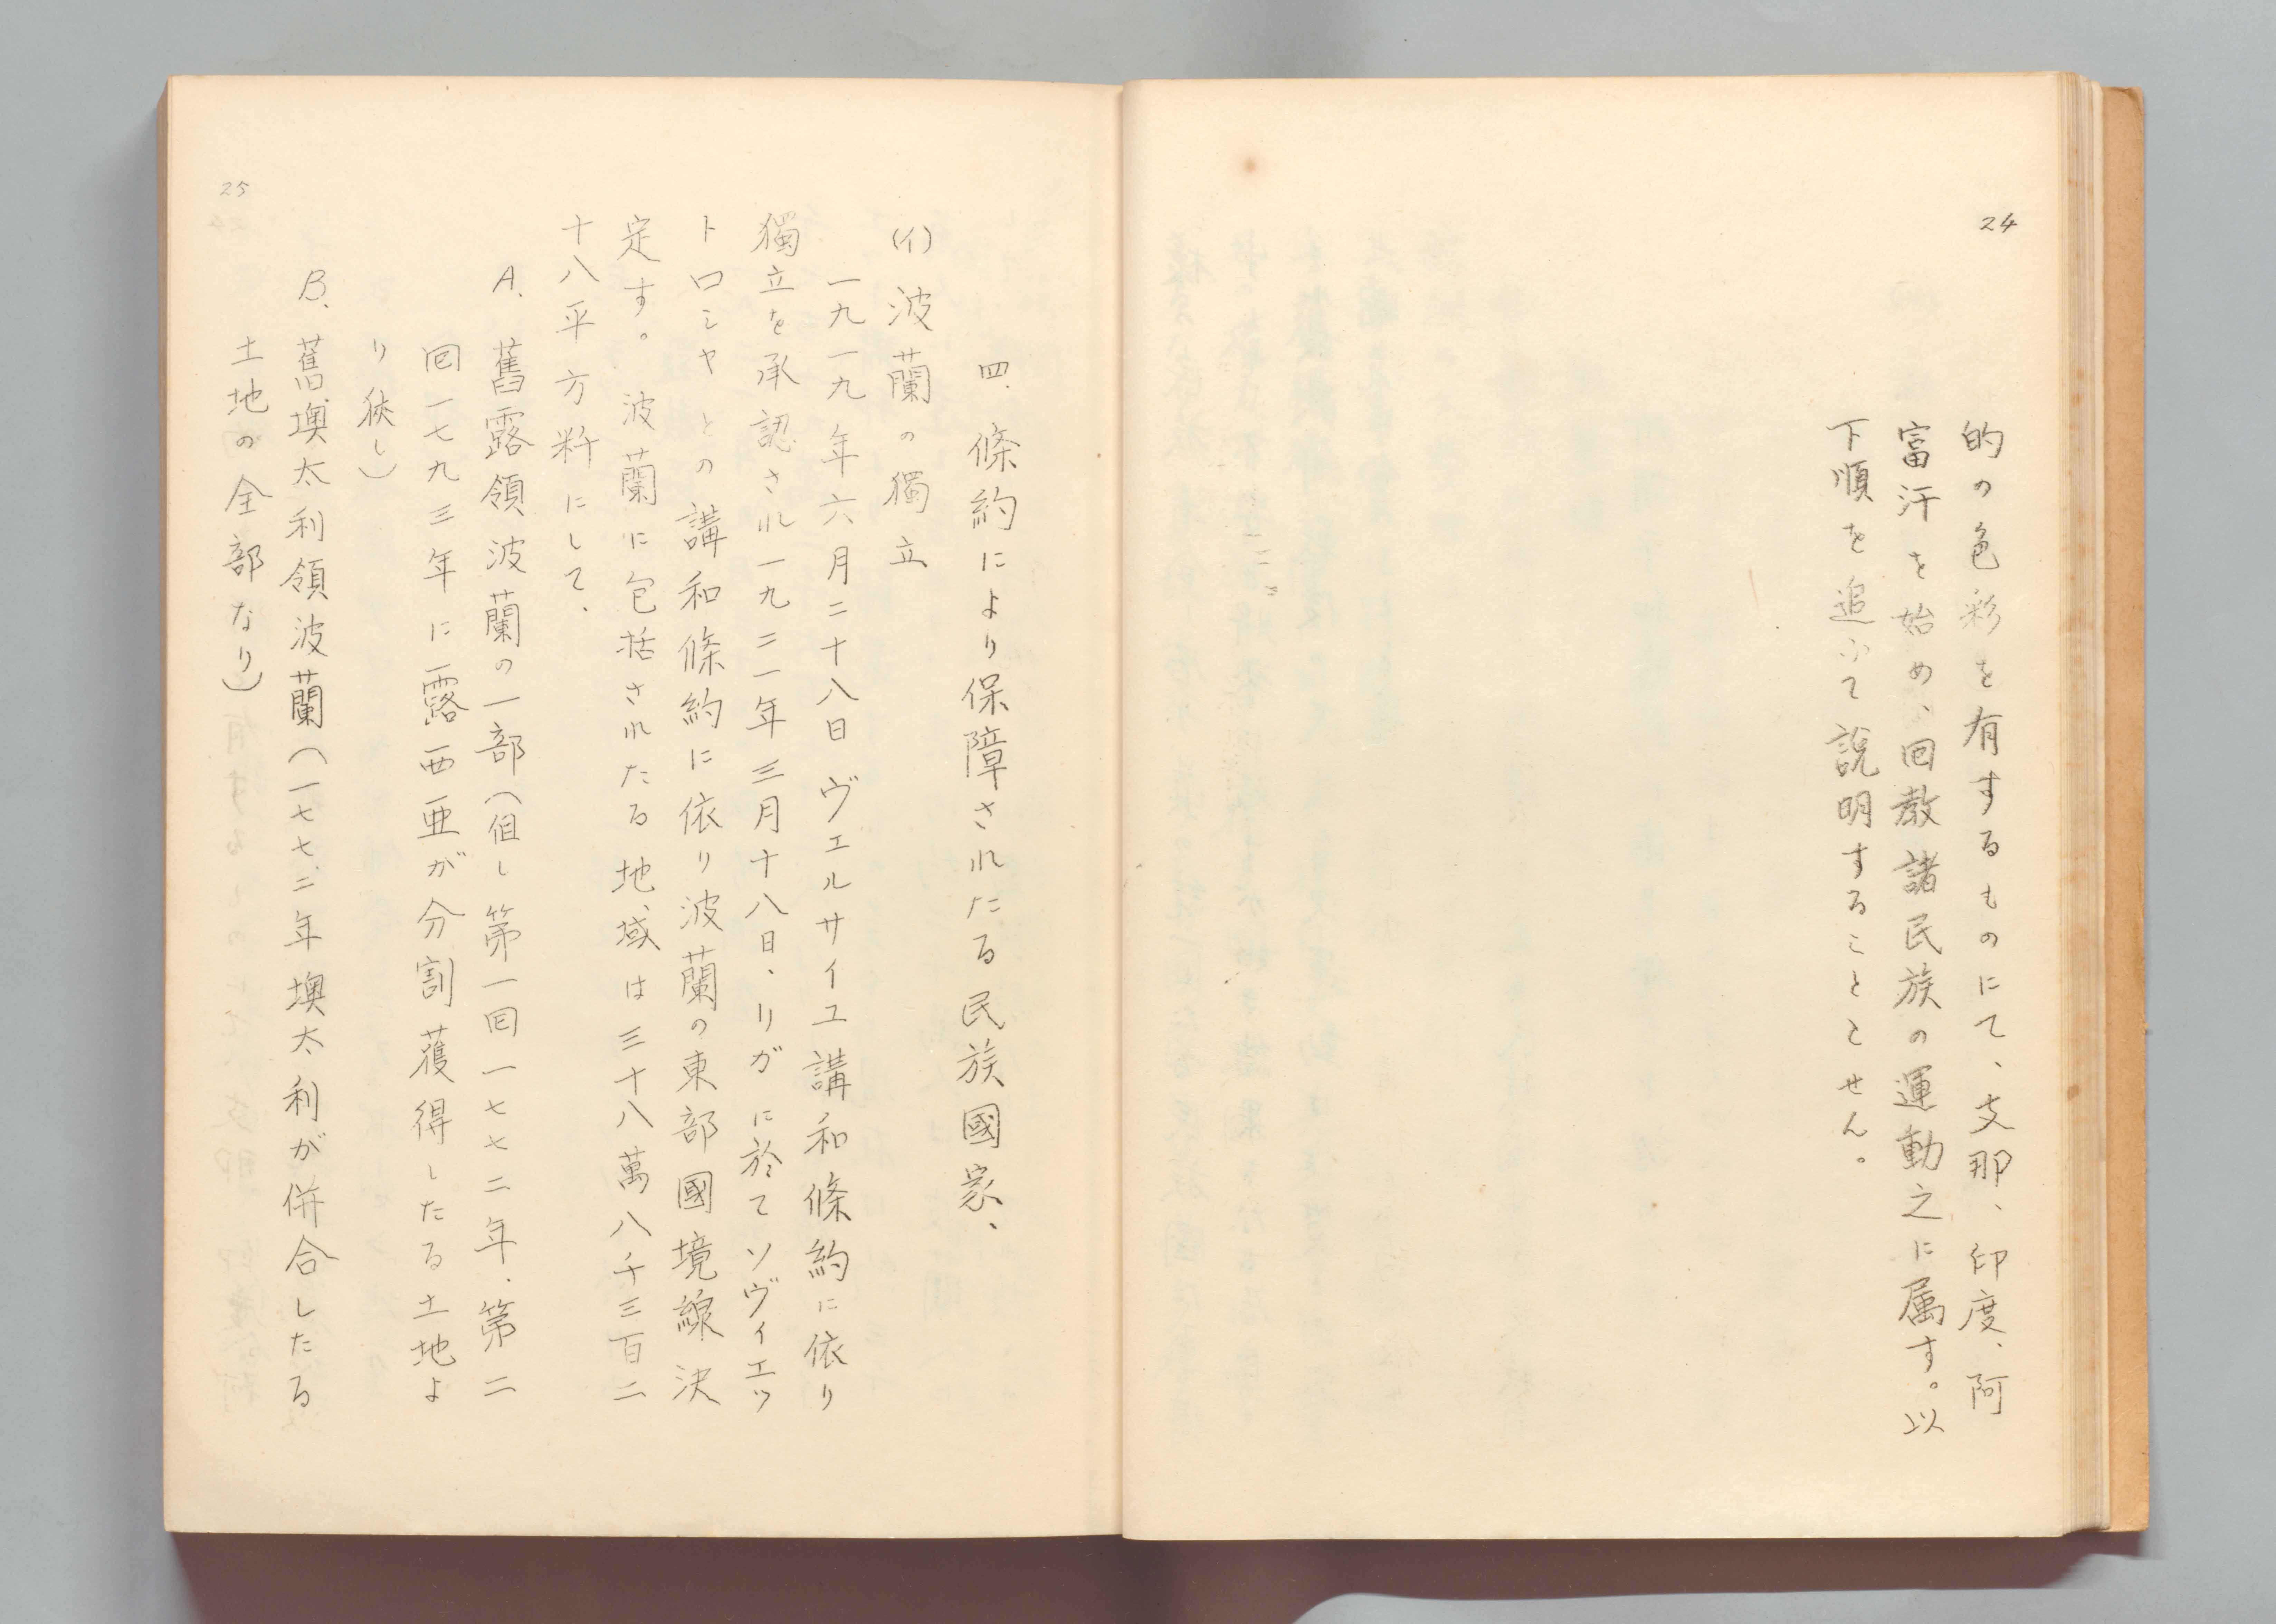 24
的の色彩を有するものにて、支那、印度、阿
富汗を始め、回教諸民族の運動之に属す。以
下順を追ふて説明することとせん。
四、條約により保障されたる民族國家、
(イ)波蘭の獨立
一九一九年六月二十八日ヴェルサイユ講和條約に依り
獨立を承認され一九二一年三月十八日、リガに於てソヴィエッ
トロシヤとの講和條約に依り波蘭の東部國境線決
定す。波蘭に包括されたる地域は三十八萬八千三百二
十八平方粁にして、
A、舊露領波蘭の一部(但し第一回一七七二年、第二
回一七九三年に露西亜が分割獲得したる土地よ
り狭し)
B、舊墺太利領波蘭(一七七二年墺太利が併合したる
土地の全部なり)
25